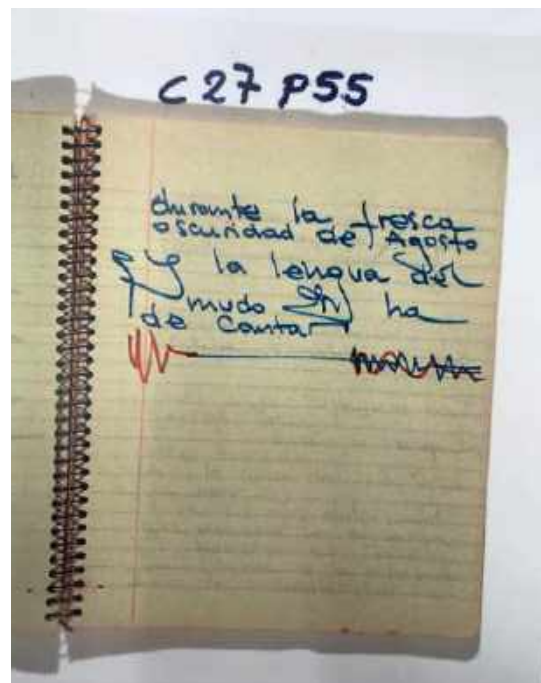 C 27 P55
durante la fresca
oscuridad de Agosto
y la lengua del
mudo ha
de cantar